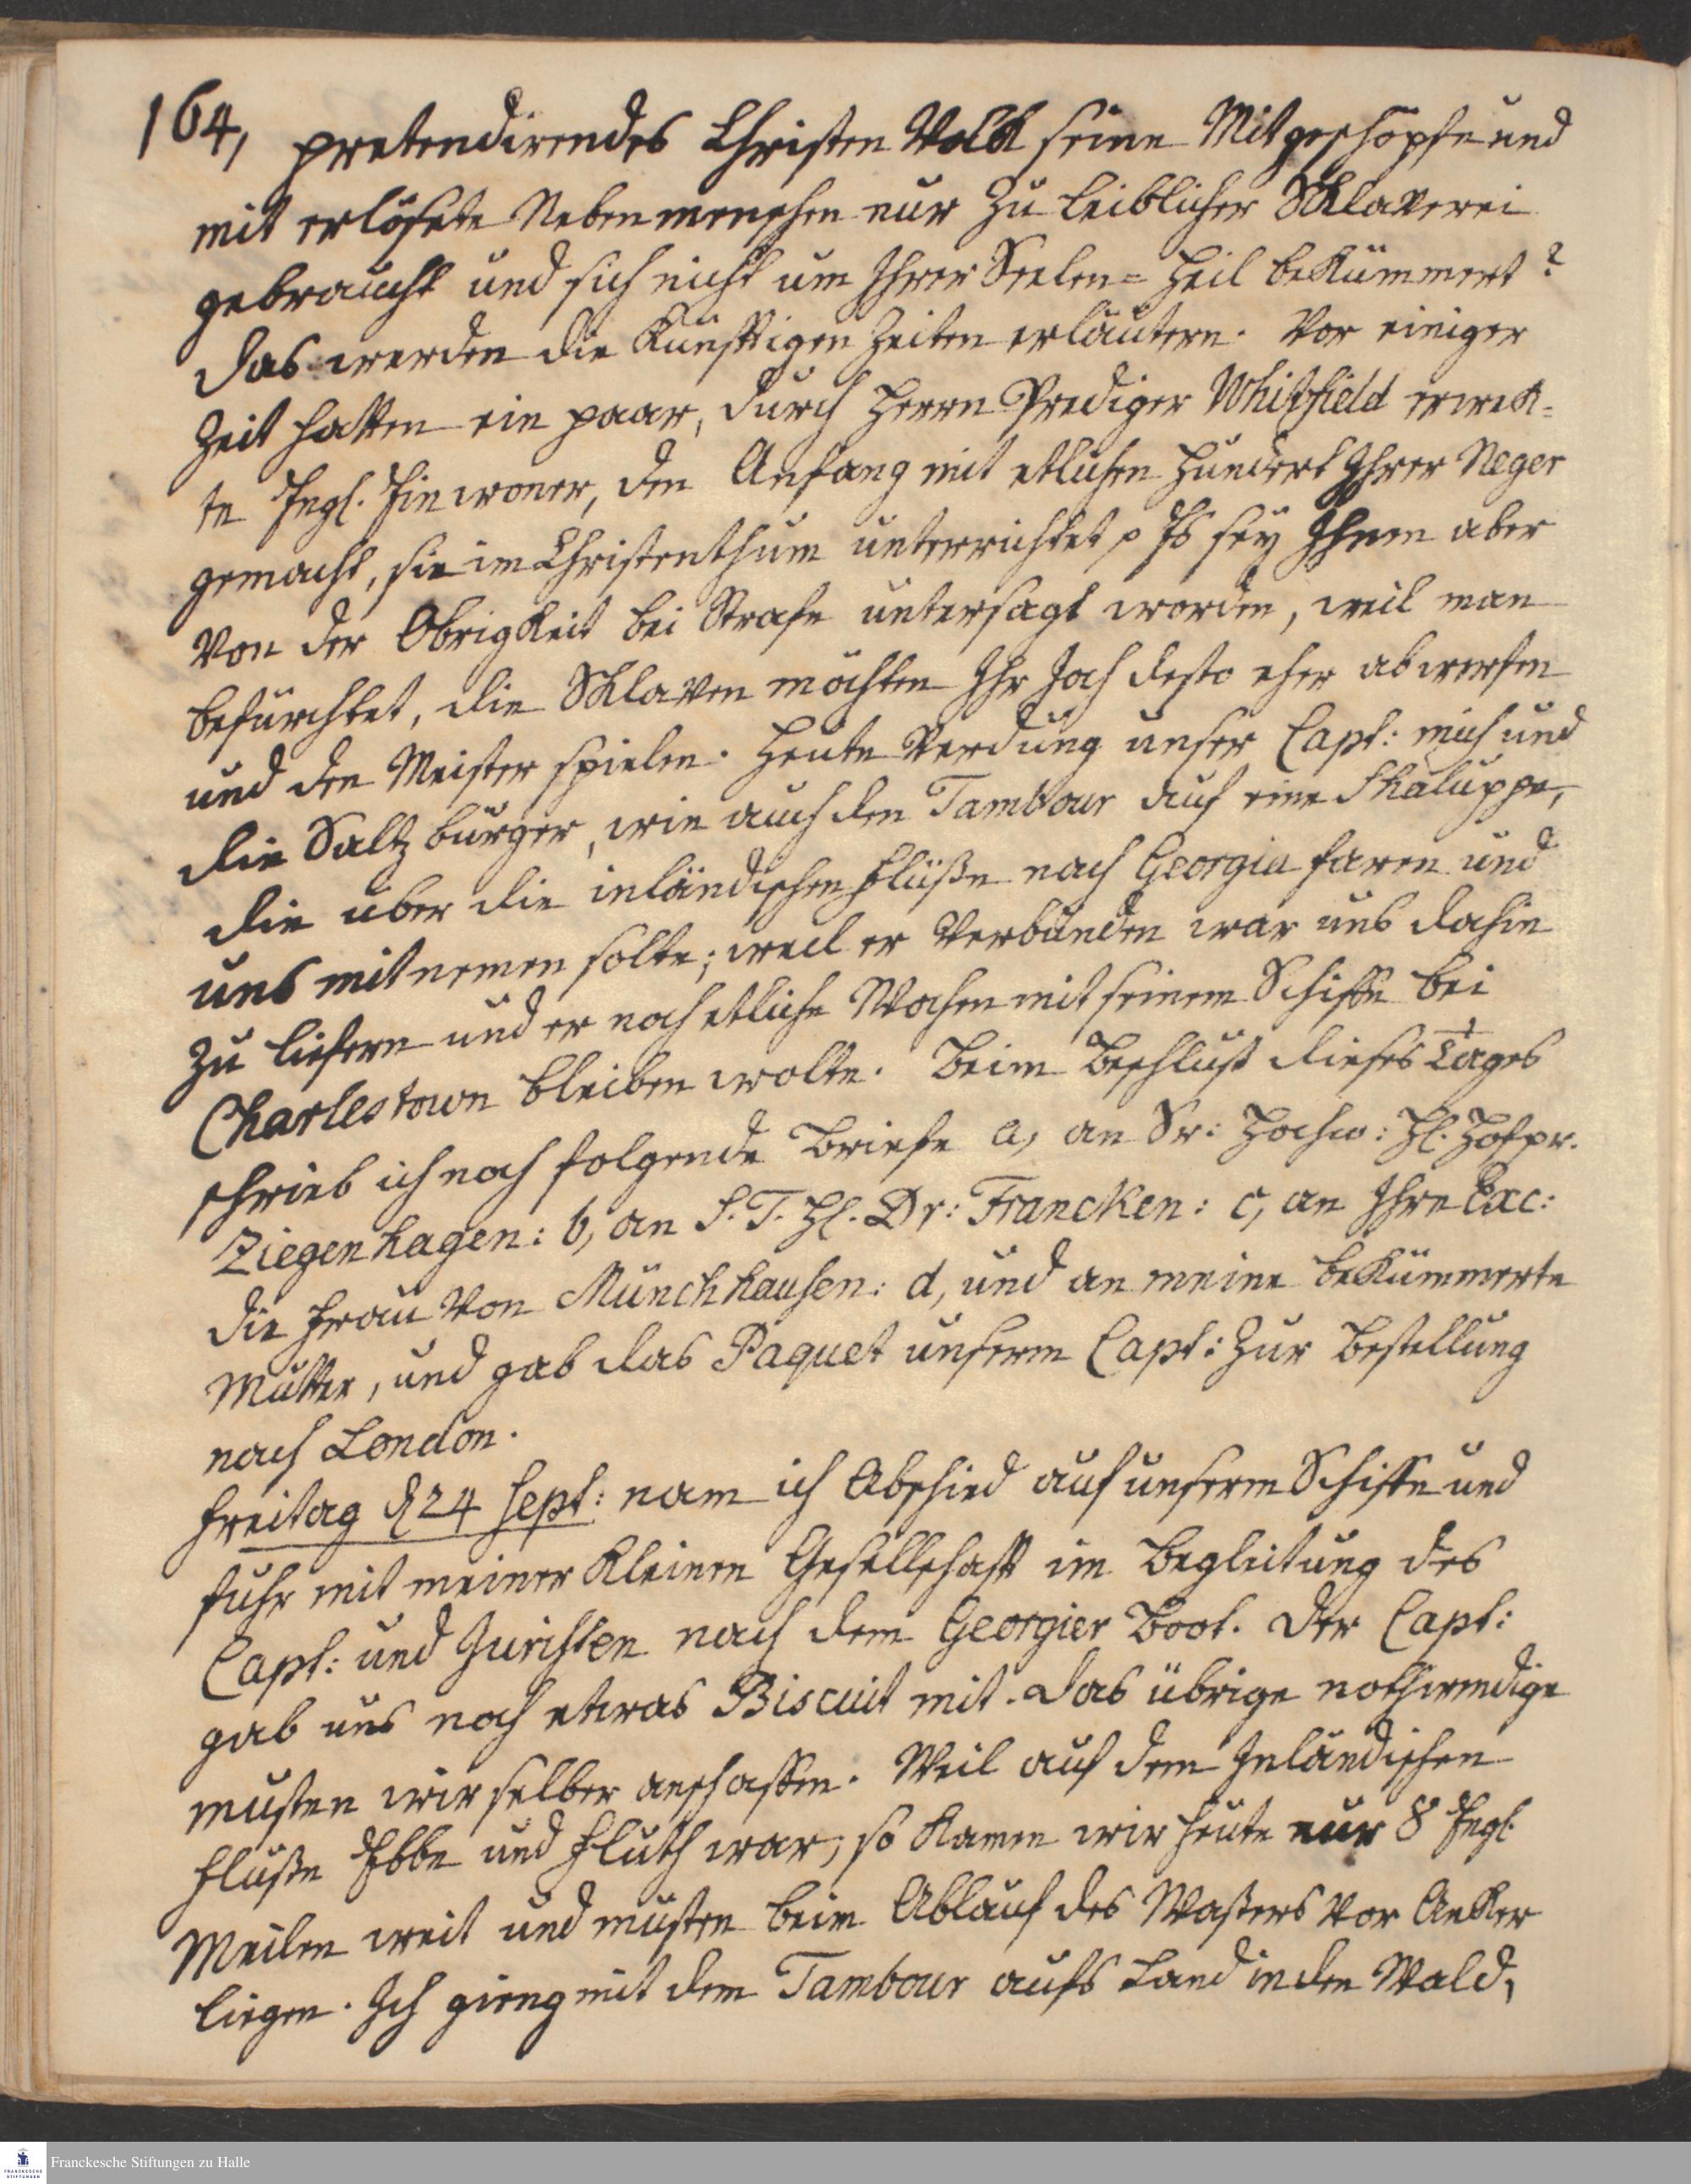 164, pretendirendes Christen Volck seine Mitgeschöpfe und
mit erlösete Nebenmenschen nur zu leiblicher Sklaverei
gebraucht und sich nicht um Ihrer Seelen= Heil bekümmert?
das werden die künfftigen Zeiten erläutern. Vor einiger
Zeit hatten ein paar, durch Herrn Prediger Whitfield erwek=
te Engl. Einwoner, den Anfang mit etlichen hundert Ihrer Neger
gemacht, sie im Christenthum unterrichtet p Es sey Ihnen aber
von der Obrigkeit bei Strafe untersagt worden, weil man
befürchtet, die Sklaven möchten Ihr Joch desto eher abwerfen
und den Meister spielen. Heute verdung unser Capt: mich und
die Saltzburger, wie auch den Tambour auf eine Shaluppe,
die über die inländischen Flüße nach Georgia faren und
uns mitnemen solte; weil er verbunden war uns dahin
zu liefern und er noch etliche Wochen mit seinem Schiffe bei
Charlestown bleiben wolte. Beim Beschluß dieses Tages
schrieb ich noch folgende Briefe a, an Sr: Hochw: H. Hofpr.
Ziegenhagen: b, an S. T. H. Dr: Francken: c, an Ihre Exc:
die Frau von Münchhausen: d, und an meine bekümmerte
Mutter, und gab das Paquet unserm Capt: zur Bestellung
nach London.
Freitag d 24 Sept: nam ich Abschied auf unserm Schiffe und
fuhr mit meiner kleinen Gesellschafft im Begleitung des
Capt: und Zurichten nach dem Georgier Boot. Der Capt:
gab uns noch etwas Biscuit mit. das übrige nothwendige
musten wir selber anschaffen. Weil auf dem Inländischen
Fluße Ebbe und Fluth war, so kamen wir heute nur 8 Engl.
Meilen weit und musten beim Ablauf des Waßers vor Anker
liegen. Ich gieng mit dem Tambour aufs Land in den Wald,
Franckesche Stiftungen zu Halle